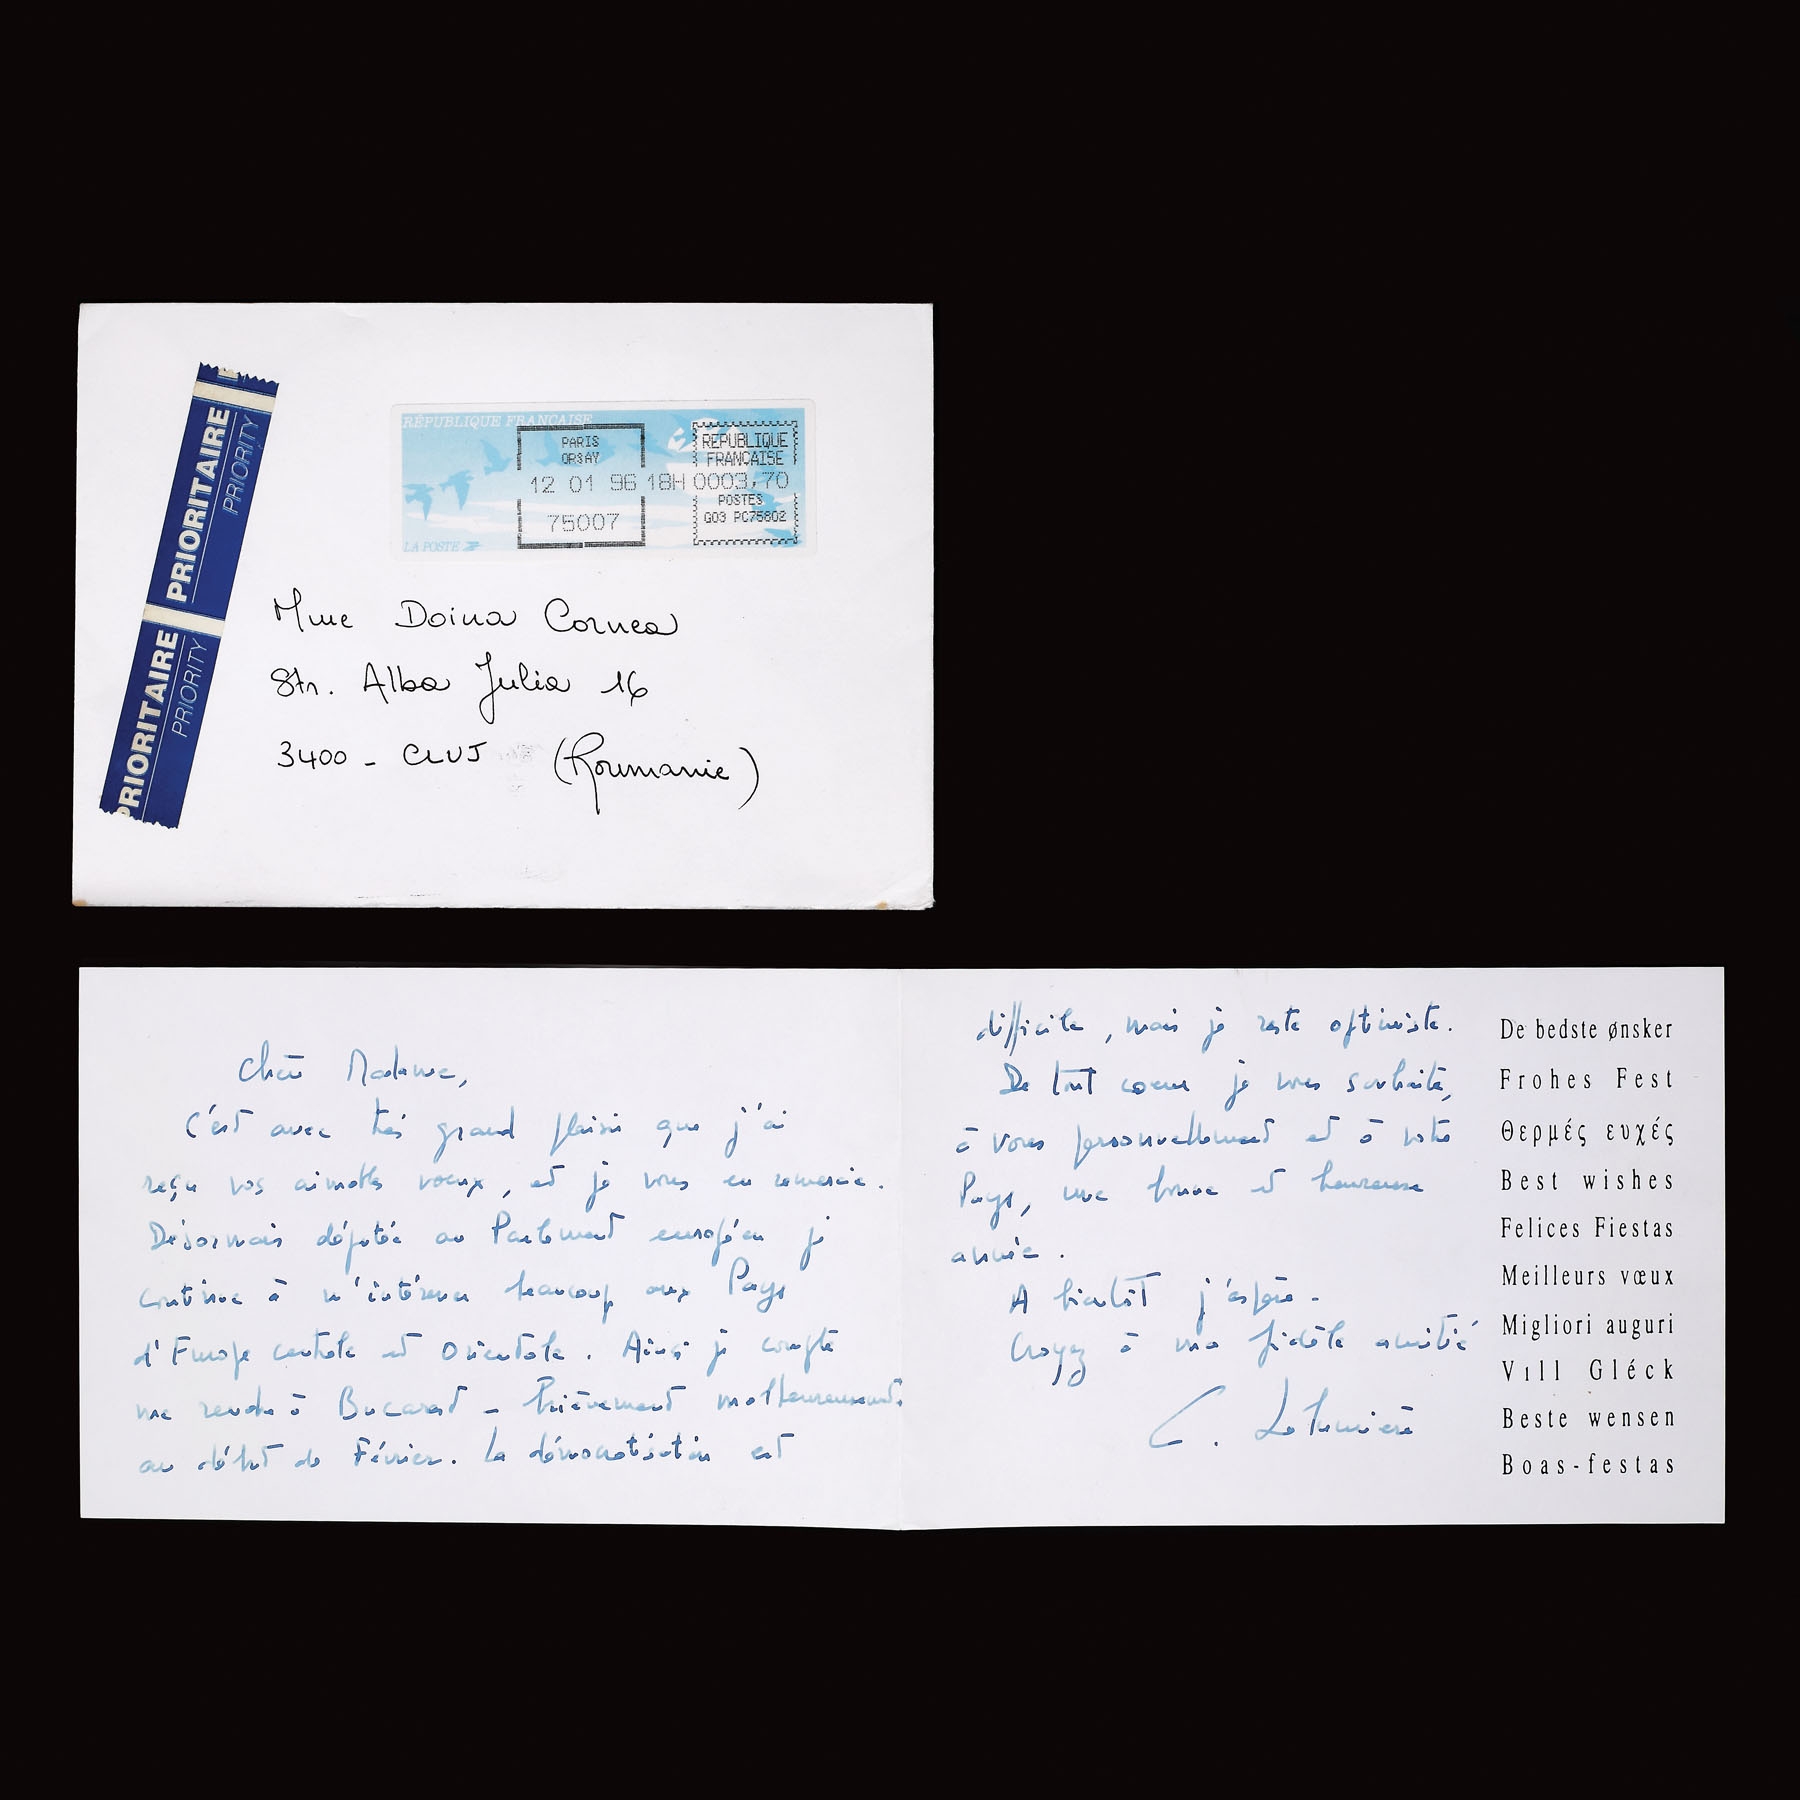 PRIORITAIRE
PRIORITY
PRIORITAIRE
PRIORITY
RÉPUBLIQUE FRANÇAISE
PARIS
ORSAY
12 01 96 18H
75007
REPUBLIQUE
FRANÇAISE
0003,70
POSTES
G03 PC75802
LA POSTE
Mme Doina Cornea
Str. Alba Julia 16
3400 - CLUJ (Roumanie)
Chère Madame,
C'est avec très grand plaisir que j'ai
reçu vos aimables voeux, et je vous en remercie.
Désormais députée au Parlement européen je
continue à m'intéresser beaucoup aux Pays
d'Europe centrale et Orientale. Ainsi je compte
me rendre à Bucarest - brièvement malheureusement.
au début de Février. La démocratisation est
difficile, mais je reste optimiste.
De tout coeur je vous souhaite,
à vous personnellement et à votre
Pays, une bonne et heureuse
année.
A bientôt j'espère -
Croyez à ma fidèle amitié
C. Lalumière
De bedste ønsker
Frohes Fest
Θερμές ευχές
Best wishes
Felices Fiestas
Meilleurs vœux
Migliori auguri
Vıll Gléck
Beste wensen
Boas-festas